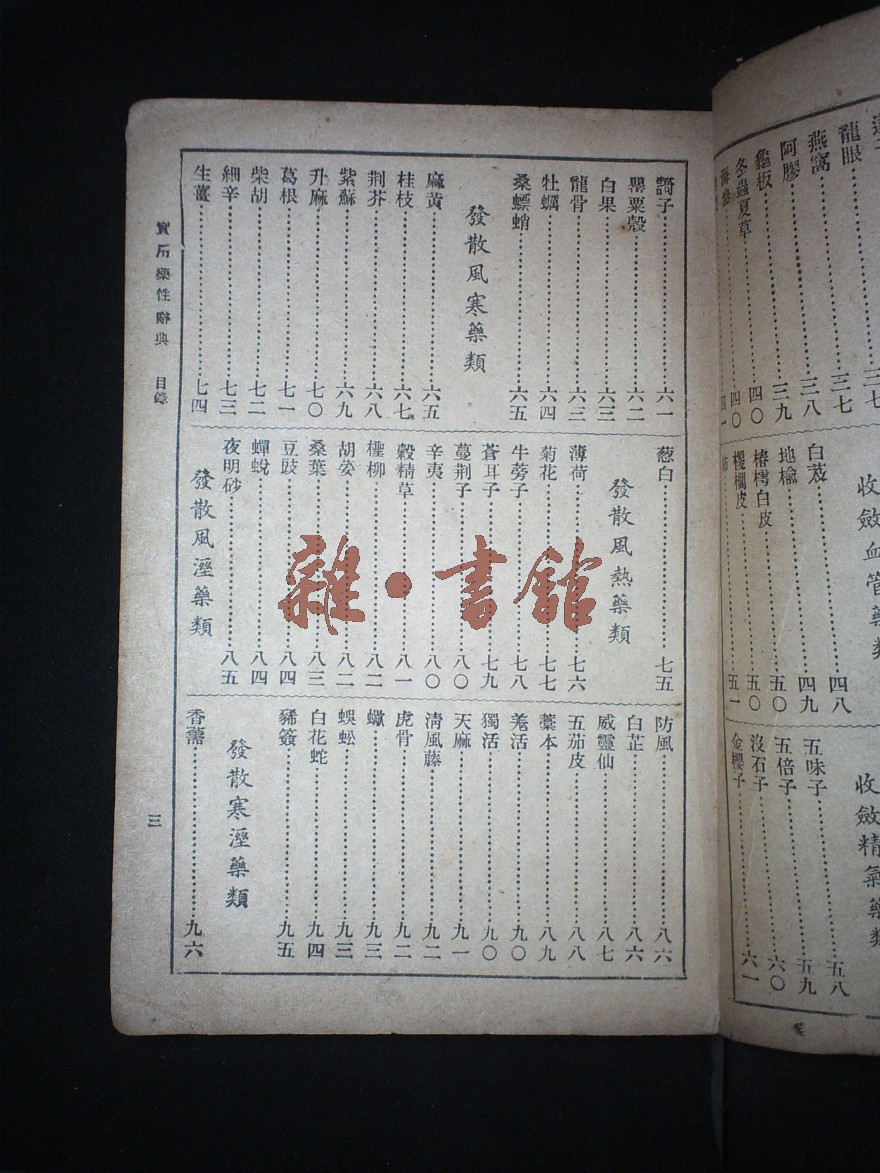 龍眼 三七
燕窩 三八
阿膠 三九
龜板 四〇
冬蟲夏草 四〇
收斂血管藥類
白芨 四八
地楡 四九
椿樗白皮 五〇
椶櫚皮 五〇
五一
收斂精氣藥類
五味子 五八
五倍子 五九
沒石子 六〇
金櫻子 六一
訶子 六一
罌粟殼 六二
白果 六三
龍骨 六三
牡蠣 六四
桑螵蛸 六五
發散風寒藥類
麻黃 六五
桂枝 六七
荆芥 六八
紫蘇 六九
升麻 七〇
葛根 七一
柴胡 七二
細辛 七三
生薑 七四
葱白 七五
發散風熱藥類
薄荷 七六
菊花 七七
牛蒡子 七八
蒼耳子 七九
蔓荆子 八〇
辛夷 八〇
穀精草 八一
檉柳 八二
胡荽 八二
桑葉 八三
豆豉 八四
蟬蛻 八四
夜明砂 八五
發散風溼藥類
防風 八六
白芷 八六
威靈仙 八七
五茄皮 八八
藁本 八九
羌活 九〇
獨活 九〇
天麻 九一
淸風藤 九二
虎骨 九二
蠍 九三
蜈蚣 九三
白花蛇 九四
豨簽 九五
發散寒溼藥類
香薷 九六
實用藥性辭典 目錄
三
雜·書館